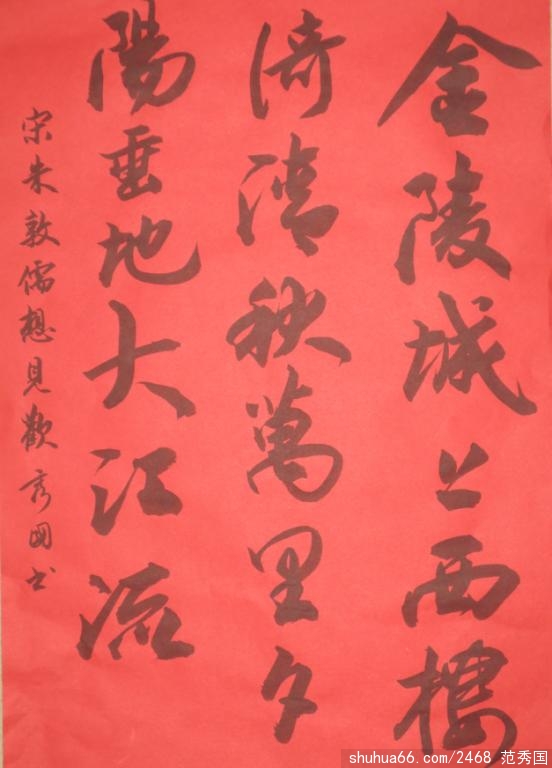 金陵城上西樓
倚清秋萬里夕
陽垂地大江流
宋朱敦儒想見歡秀國书
shuhua66.com/2468 范秀国